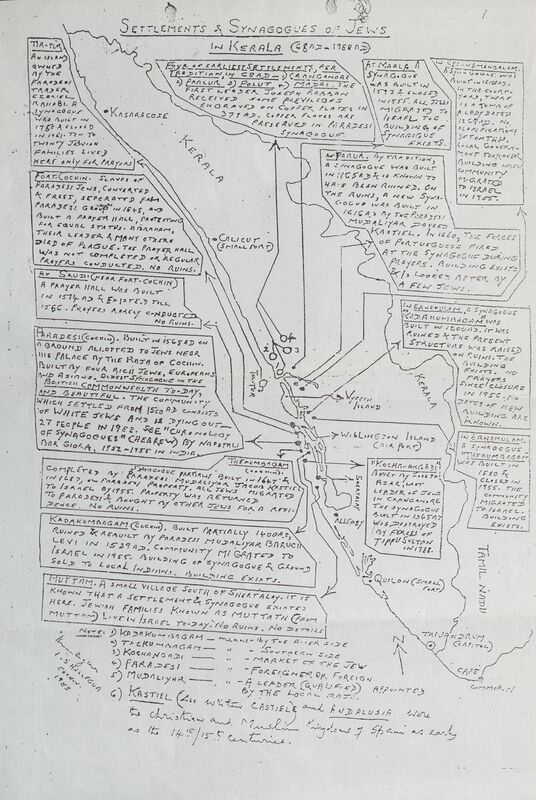 SETTLEMENTS & SYNAGOGUES OF JEWS
IN KERALA (68AD-1988AD)
AN ISLAND
OWNED
BY THE
PARADESI
TRADER
EZEKIEL
RAHABI. A
SYNAGOGUE
WAS BUILT IN
1756 & CLOSED
IN 1961. TEN TO
TWENTY JEWISH
FAMILIES LIVED
HERE ONLY FOR PRAYERS
KASARAGODE
KERALA
FOUR OF EARLIEST SETTLEMENTS, PER
TRADITION, IN 68AD - 1) CRANGANORE
2) PALUR 3) POLUT 4) MADAI. THE
FIRST LEADER JOSEPH RABBAN
RECEIVED SOME PREVILEGES
ENGRAVED ON COPPER PLATES IN
379AD. COPPER PLATES ARE
PRESERVED IN PARADESI
SYNAGOGUE.
AT MAALA A
SYNAGOGUE
WAS BUILT IN
CLOSED
IN 1955. ALL JEWS
MIGRATED TO
ISRAEL. THE
BUILDING OF
SYNAGOGUE
EXISTS.
IN CHENNAMANGALAM.
A SYNAGOGUE WAS
BUILT IN
IN THE COURT-
YARD, THERE
IS A TOMB OF
A LADY DATED
1269AD. NO
LOCAL GOVERN-
MENT TOOK OVER
BUILDING WHEN
COMMUNITY
MIGRATED
TO ISRAEL
IN 1955.
IN PARUR, BY TRADITION,
A SYNAGOGUE WAS BUILT
IN 1165AD & IS KNOWN TO
HAVE BEEN RUINED. ON
THE RUINS, A NEW SYNA-
GOGUE WAS BUILT IN
1616AD BY THE PARADESI
MUDALIYAR DAVID
KASTIEL. IN 1660, THE FORCES
OF PORTUGUESE FIRED
AT THE SYNAGOGUE DURING
PRAYERS. BUILDING EXISTS
& IS LOOKED AFTER BY
A FEW JEWS.
FORT-COCHIN. SLAVES OF
PARADESI JEWS, CONVERTED
& FREED, SEPERATED FROM
PARADESI GROUP IN 1848, AND
BUILT A PRAYER HALL, PROTESTING
FOR EQUAL STATUS. ABRAHAM,
THEIR LEADER & MANY OTHERS
DIED OF PLAGUE. THE PRAYER HALL
WAS NOT COMPLETED OR REGULAR
PRAYERS CONDUCTED. NO RUINS.
CALICUT (SMALL PORT)
AT SAUDI (NEAR FORT-COCHIN)
A PRAYER HALL WAS BUILT
IN 1514AD & EXISTED TILL
1556. PRAYERS RARELY CONDUCTED.
NO RUINS.
PARADESI (COCHIN). BUILT IN 1568AD ON
A GROUND ALLOTTED TO JEWS NEAR
HIS PALACE BY THE RAJA OF COCHIN.
BUILT BY FOUR RICH JEWS, EUROPEANS
AND ASIANS. OLDEST SYNAGOGUE IN THE
BRITISH COMMONWEALTH TO-DAY,
AND BEAUTIFUL. THE COMMUNITY
WHICH SETTLED FROM 1500AD CONSISTS
OF WHITE JEWS AND IS DYING OUT -
27 PEOPLE IN 1988. SEE "CHRONOLOGY
OF SYNAGOGUES" (HEBREW) BY NAPHTALI
BAR GIORA, 1952-1955 IN INDIA.
VYPEEN
ISLAND
WILLINGDON ISLAND
(AIRPORT)
KERALA
IN ERNAKULAM, A SYNAGOGUE
"KADAKUMBAGAM" WAS
BUILT IN 1200AD. IT WAS
RUINED & THE PRESENT
STRUCTURE WAS RAISED
ON RUINS. THE
BUILDING
EXISTS. NO
PRAYERS
SINCE CLOSURE
IN 1956. NO
DATES OF NEW
BUILDING ARE
KNOWN.
IN ERNAKULAM,
A SYNAGOGUE
"THEKUMBAGAM"
WAS BUILT IN
1580 &
CLOSED IN
1955. THE
COMMUNITY
MIGRATED
TO ISRAEL.
BUILDING
EXISTS.
THEKUMBAGAM
(COCHIN)
SYNAGOGUE PARTIALLY BUILT IN 1647 &
COMPLETED BY PARADESI MUDALIYAR JACOB KASTIEL
IN 1687, ON PARADESI PROPERTY. ALL JEWS MIGRATED
TO ISRAEL BY 1955. PROPERTY WAS RETURNED
TO PARADESI & BOUGHT BY OTHER JEWS FOR A RESI-
DENCE. NO RUINS.
"KOCHANGADI"
BUILT BY JOSEPH
AZAR, LAST
LEADER OF JEWS
IN CRANGANORE
THE SYNAGOGUE
BUILT IN 1365AD
WAS DESTROYED
BY FORCES OF
TIPPU SULTAN
IN 1788.
SHERTALAY
ALLEPPY
KADAKUMBAGAM (COCHIN). BUILT PARTIALLY 1400AD,
RUINED & REBUILT BY PARADESI MUDALIYAR BARUCH
LEVI IN 1539AD. COMMUNITY MIGRATED TO
ISRAEL IN 1955. BUILDING OF SYNAGOGUE & GROUND
SOLD TO LOCAL INDIANS. BUILDING EXISTS.
MUTTAM. A SMALL VILLAGE SOUTH OF SHERTALAY. IT IS
KNOWN THAT A SETTLEMENT & SYNAGOGUE EXISTED
HERE. JEWISH FAMILIES KNOWN AS MUTTATH (FROM
MUTTAM) LIVE IN ISRAEL TO-DAY. NO RUINS. NO DETAILS
QUILON (SMALL
PORT)
TAMIL NADU
TRIVANDRUM
(CAPITAL)
CAPE
COMMORIN
N
NOTE: 1) KADAKUMBAGAM - MEANS - BY THE RIVER SIDE
2) THEKUMBAGAM - " - SOUTHERN SIDE
3) KOCHANGADI - " - MARKET OF THE JEW
4) PARADESI - " - FOREIGNER OR FOREIGN
5) MUDALIYAR - " - A LEADER (QUALIFIED) APPOINTED
BY THE LOCAL RAJA.
6) KASTIEL (also written CASTIEL) and ANDALUSIA were
the christian and Muslim Kingdoms of Spain as early
as the 14th/15th centuries.